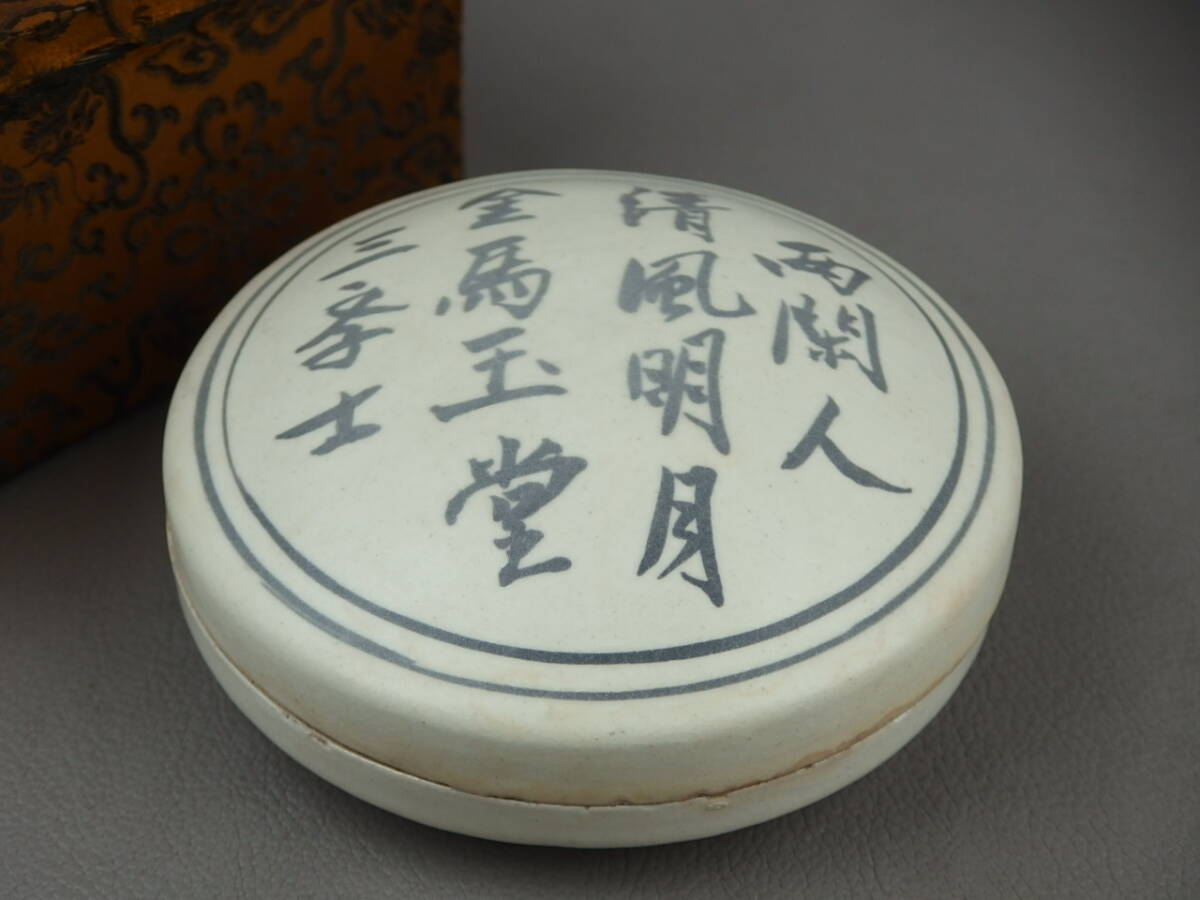 两閑人
清風明月
金馬玉堂
三斈士